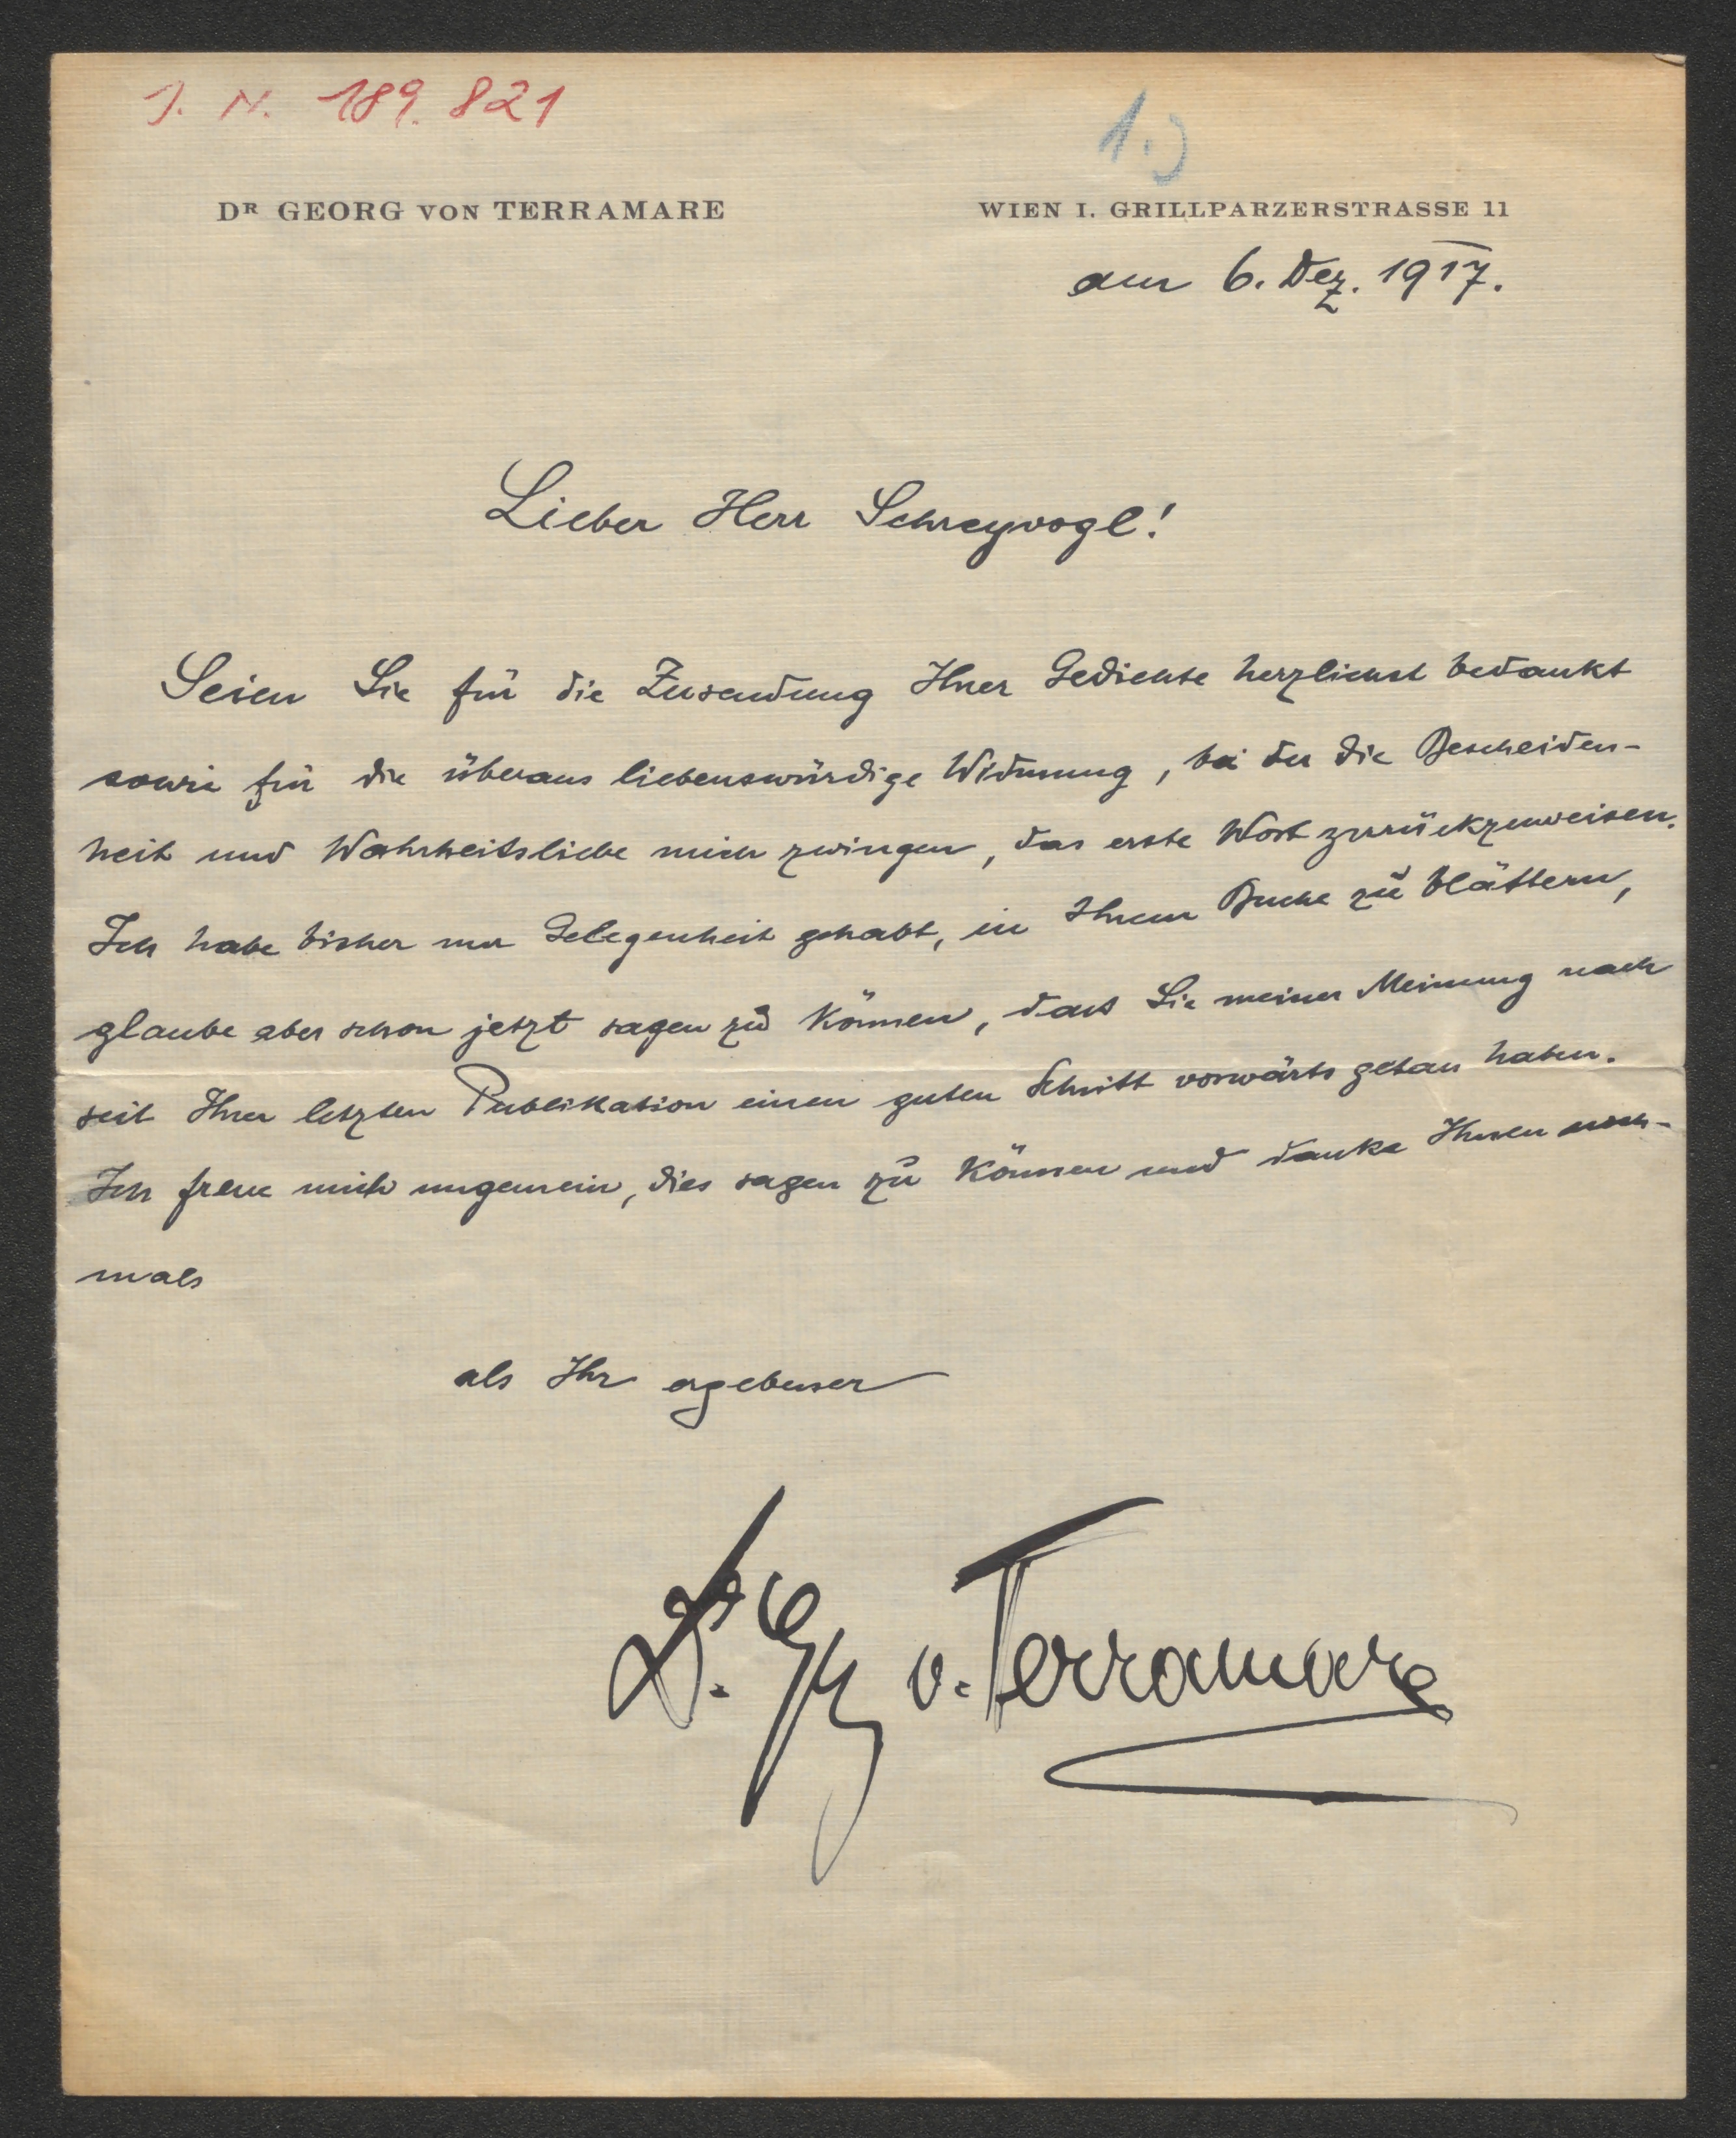 J. N. 189.821
1.)
DR GEORG VON TERRAMARE
WIEN I. GRILLPARZERSTRASSE 11
am 6. Dez. 1917.
Lieber Herr Schreyvogl!
Seien Sie für die Zusendung Ihrer Gedichte herzlichst bedankt
sowie für die überaus liebenswürdige Widmung, bei der die Bescheiden-
heit und Wahrheitsliebe mich zwingen, das erste Wort zurückzuweisen.
Ich habe bisher nur Gelegenheit gehabt, in Ihrem Buche zu blättern,
glaube aber schon jetzt sagen zu können, dass Sie meiner Meinung nach
seit Ihrer letzten Publikation einen guten Schritt vorwärts getan haben.
Ich freue mich ungemein, dies sagen zu können und danke Ihnen noch-
mals
als Ihr ergebener
Dr. Gg v. Terramare